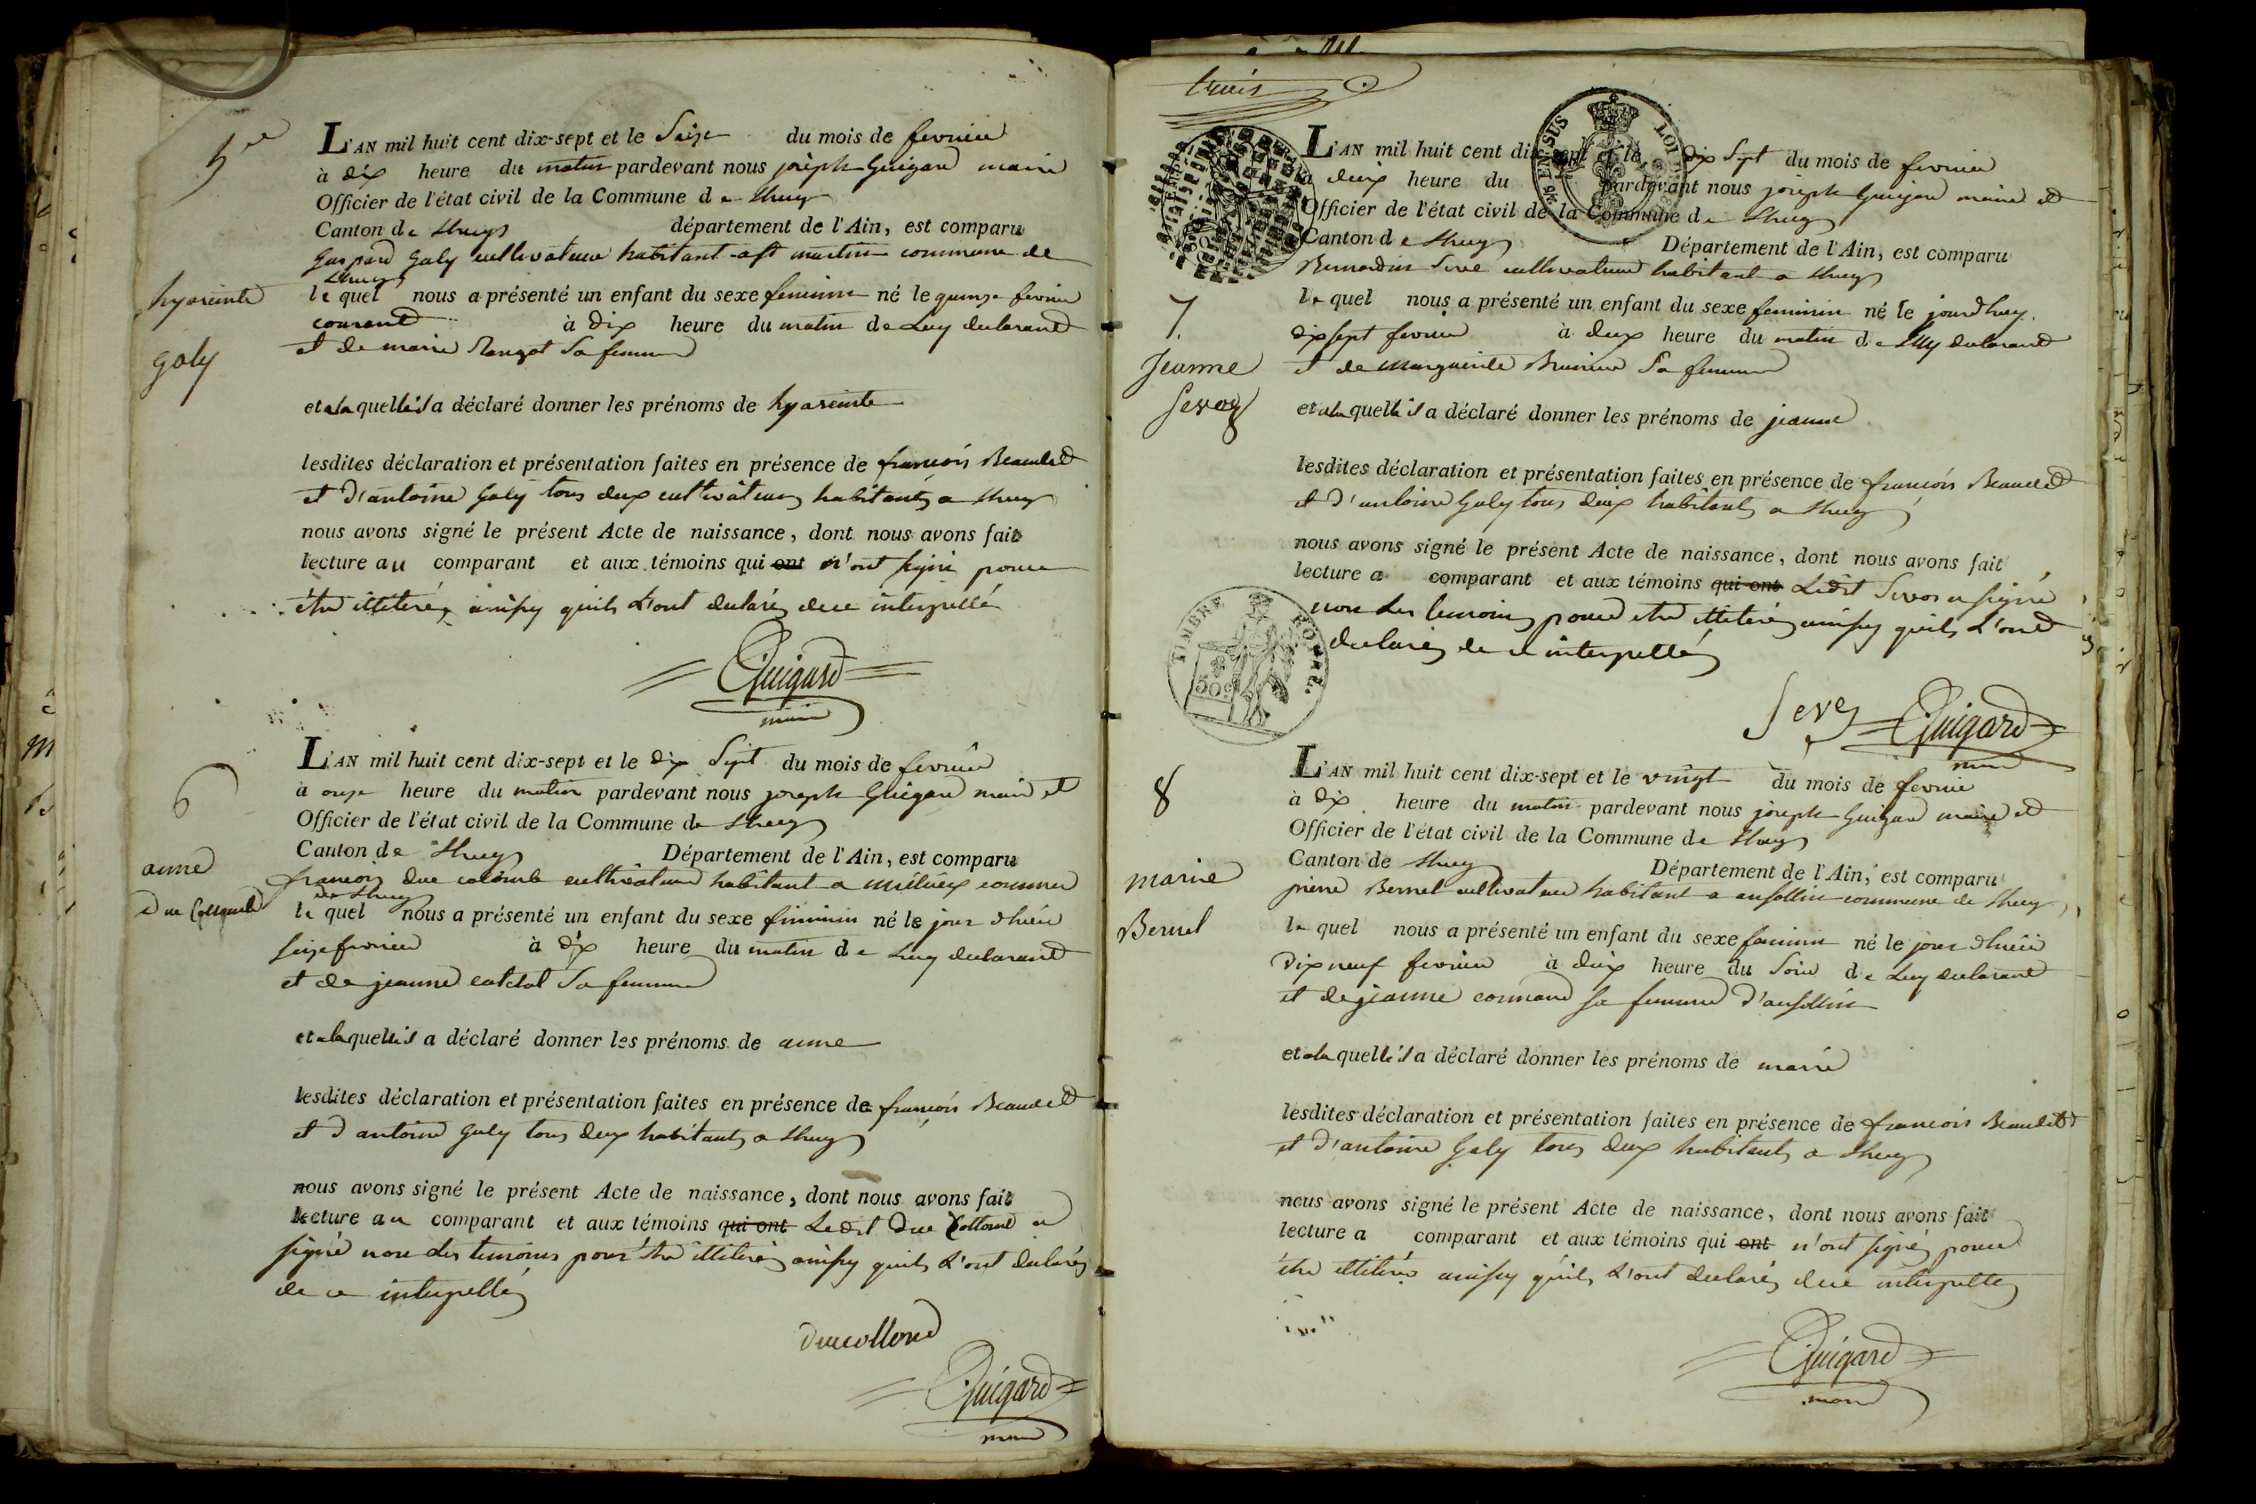 5e
L'AN mil huit cent dix-sept et le Seize du mois de fevrier
à dix heure du matin pardevant nous joseph Guigard maire
Officier de l'état civil de la Commune de Lhuys
Canton de Lhuys département de l'Ain, est comparu
Gaspard Galy cultivateur habitant a st martin commune de
Lhuys
hyacinte
le quel nous a présenté un enfant du sexe feminin né le quinze fevrier
courant à dix heure du matin de Luy declarant
galy
et de marie sa femme
et a la quelle il a déclaré donner les prénoms de hyacinte
lesdites déclaration et présentation faites en présence de françois Beaudet
et d'antoine Galy tous deux cultivateurs habitants a Lhuys
nous avons signé le présent Acte de naissance, dont nous avons fait
lecture au comparant et aux témoins qui ont n'ont signé pour
être illiterés ainsy quils L'ont declarés de ce interpellé
Guigard
maire
6
L'AN mil huit cent dix-sept et le dix Sept du mois de fevrier
à onze heure du matin pardevant nous joseph Guigard maire et
Officier de l'état civil de la Commune de Lhuys
Canton de Lhuys Département de l'Ain, est comparu
anne
françois duc colomb cultivateur habitant a commune
de Lhuys
duc
le quel nous a présenté un enfant du sexe feminin né le jour dhier
seize fevrier à dix heure du matin de Luy declarant
et de jeanne sa femme
et a la quelle il a déclaré donner les prénoms de anne
lesdites déclaration et présentation faites en présence de françois Beaudet
et d antoine Galy tous deux habitants a Lhuys
nous avons signé le présent Acte de naissance, dont nous avons fait
lecture au comparant et aux témoins qui ont Ledit Duc a
signé non les temoins pour être illiterés ainsy quils L'ont declarés
de ce interpellés
Guigard
maire
trois
L'AN mil huit cent dix-sept et le dix Sept du mois de fevrier
à deux heure du pardevant nous joseph Guigard maire et
Officier de l'état civil de la Commune de Lhuys
Canton de Lhuys Département de l'Ain, est comparu
Bernardin cultivateur habitant a Lhuys
7
le quel nous a présenté un enfant du sexe feminin né le jourdhuy
dix sept fevrier à deux heure du matin de Luy declarant
Jeanne
et de Marguerite sa femme
Sevoz
et a la quelle il a déclaré donner les prénoms de jeanne
lesdites déclaration et présentation faites en présence de françois Beaudet
et d'antoine Galy tous deux habitants a Lhuys
nous avons signé le présent Acte de naissance, dont nous avons fait
lecture a comparant et aux témoins qui ont Ledit Sevos a signé
non les temoins pour etre illiterés ainsy quils L'ont
declarés de ce interpellés
TIMBRE ROYAL
50c
Guigard
maire
8
L'AN mil huit cent dix-sept et le vingt du mois de fevrier
à dix heure du matin pardevant nous joseph Guigard maire et
Officier de l'état civil de la Commune de Lhuys
Canton de Lhuys Département de l'Ain, est comparu
marie
pierre Bernet cultivateur habitant a ansollin commune de Lhuys
Bernet
le quel nous a présenté un enfant du sexe feminin né le jour dhier
Dix neuf fevrier à dix heure du Soir de Luy declarant
et de jeanne sa femme d'ansollin
et a la quelle il a déclaré donner les prénoms de marie
lesdites déclaration et présentation faites en présence de françois Beaudet
et d'antoine Galy tous deux habitants a Lhuys
nous avons signé le présent Acte de naissance, dont nous avons fait
lecture a comparant et aux témoins qui ont n'ont signés pour
être illiterés ainsy quils L'ont declarés de ce interpellés
Guigard
maire